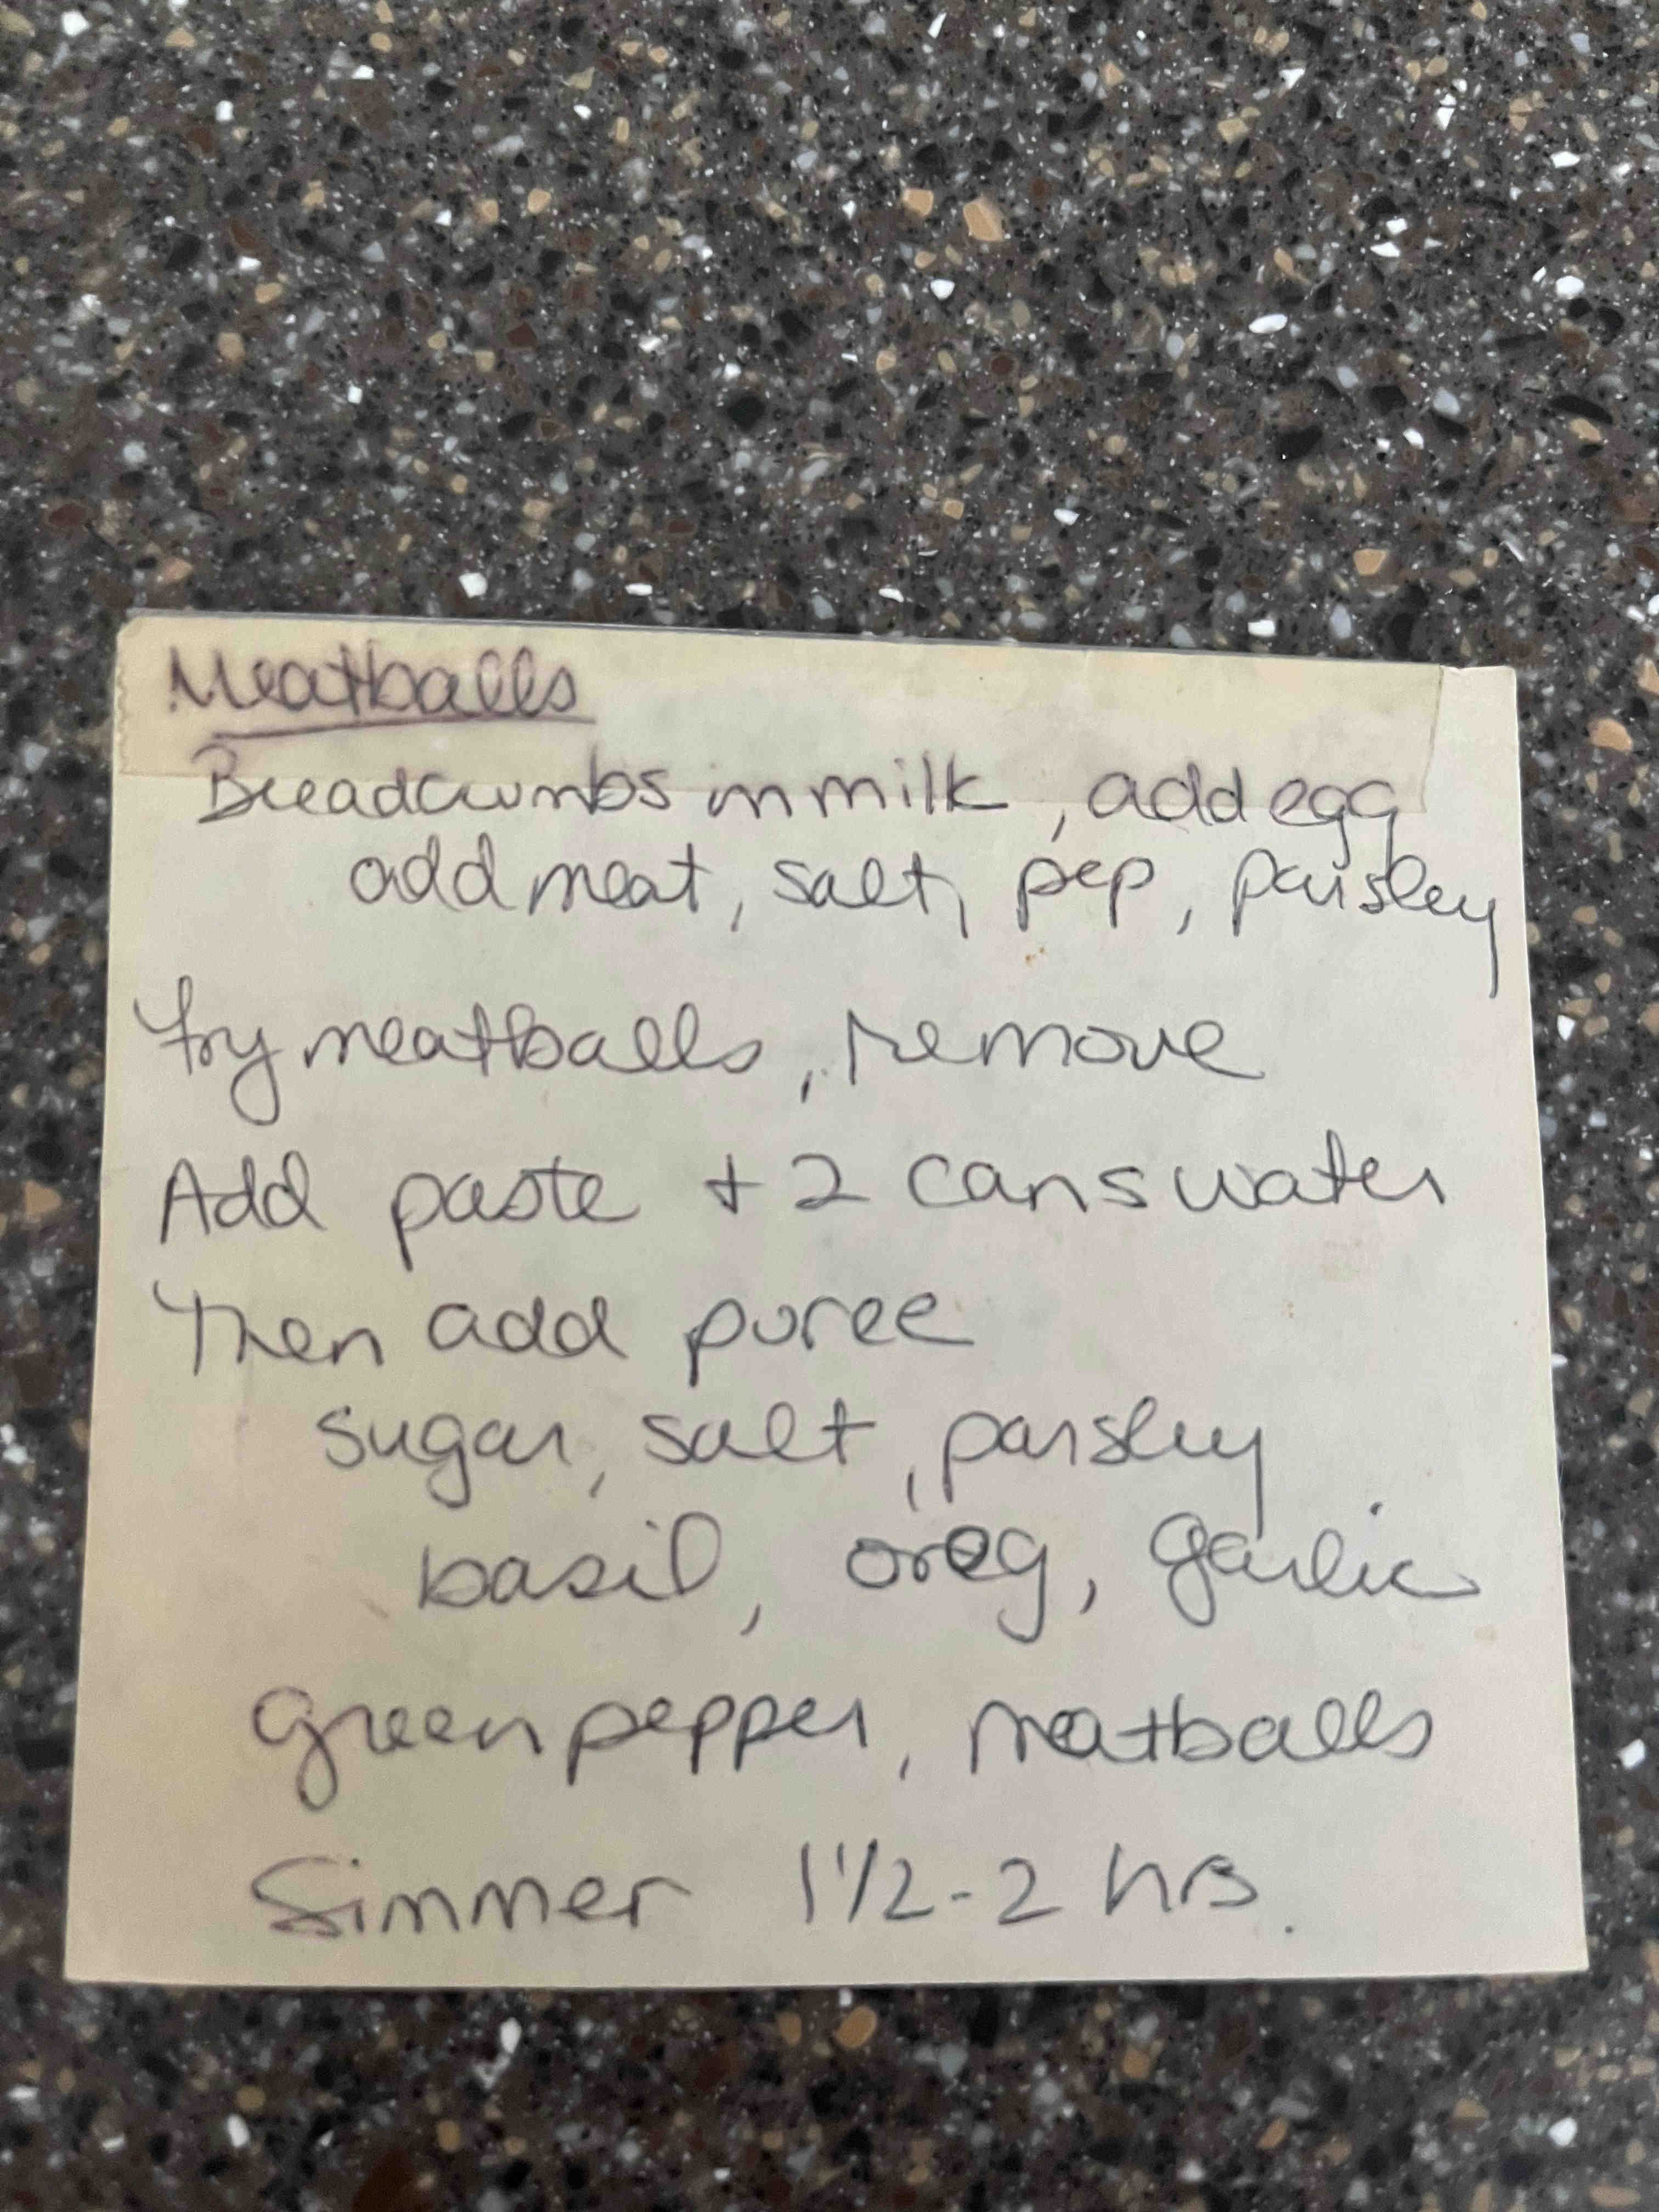 Meatballs
Breadcrumbs in milk, add egg
add meat, salt, pep, parsley
Fry meatballs, remove
Add paste + 2 cans water
Then add puree
sugar, salt, parsley
basil, oreg, garlic
green pepper, meatballs
Simmer 1 1/2 - 2 hrs.